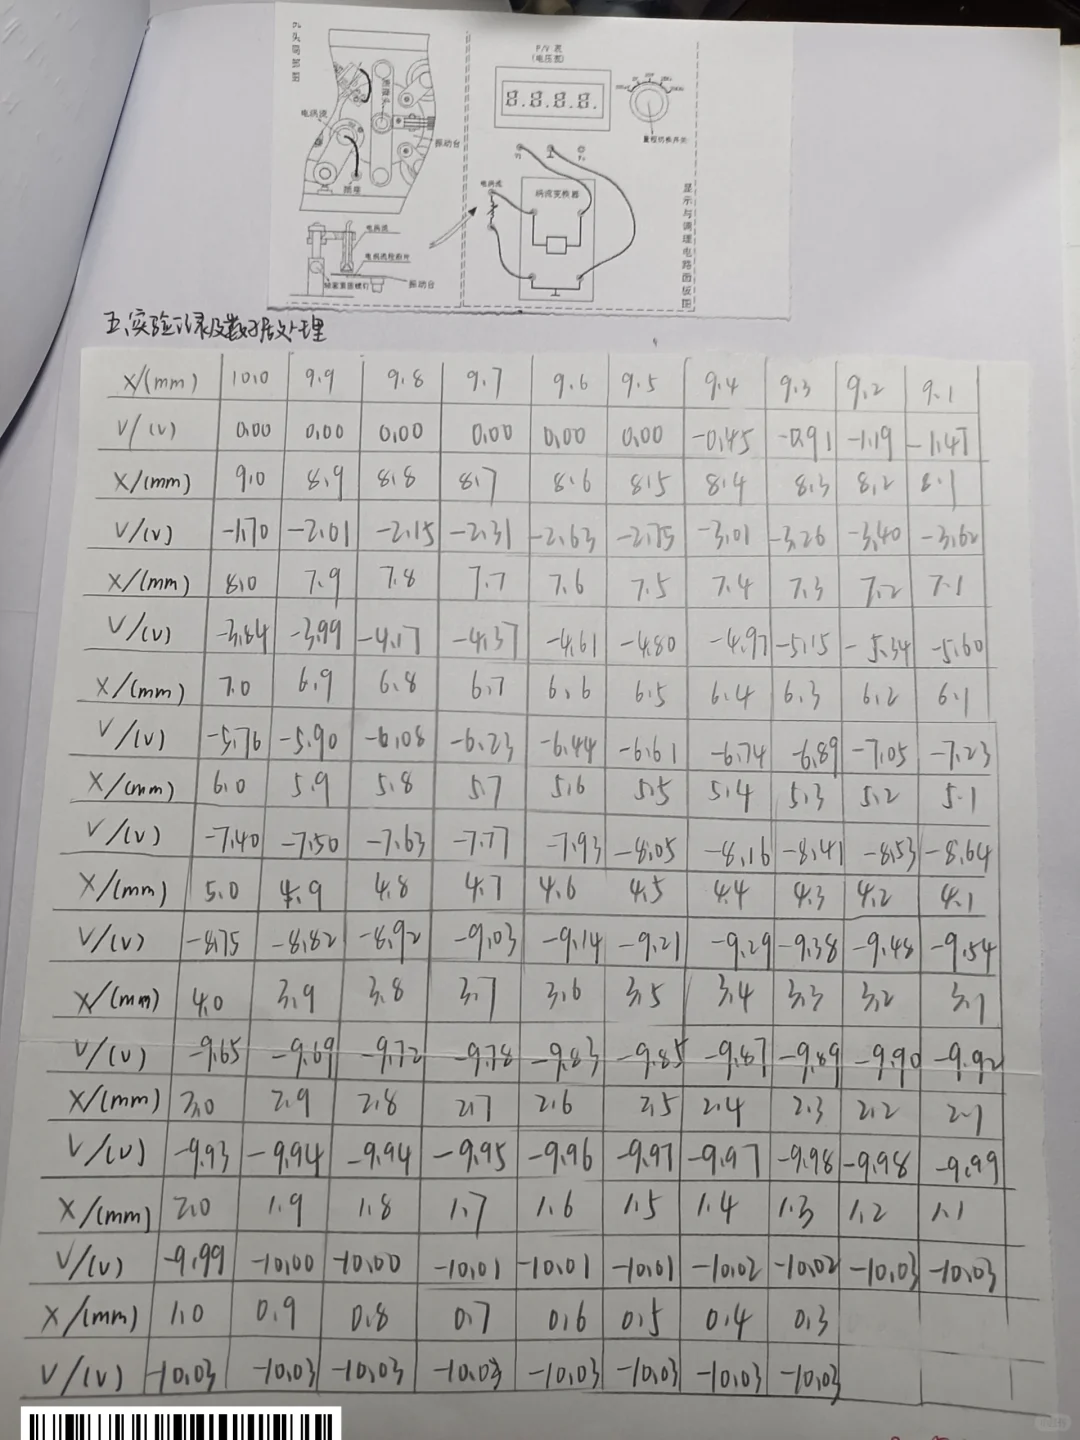 F/V 表
(电压表)
8.8.8.8.
量程切换开关
电涡流
测微头
振动台
Vi
Fo
电涡流
涡流变换器
显示与调理电路面板图
电涡流
电涡流检测片
振动台
五、实验记录及数据处理
X/(mm) 10.0 9.9 9.8 9.7 9.6 9.5 9.4 9.3 9.2 9.1
V/(v) 0.00 0.00 0.00 0.00 0.00 0.00 -0.45 -0.91 -1.19 -1.47
X/(mm) 9.0 8.9 8.8 8.7 8.6 8.5 8.4 8.3 8.2 8.1
V/(v) -1.70 -2.01 -2.15 -2.31 -2.63 -2.75 -3.01 -3.26 -3.40 -3.62
X/(mm) 8.0 7.9 7.8 7.7 7.6 7.5 7.4 7.3 7.2 7.1
V/(v) -3.84 -3.99 -4.17 -4.37 -4.61 -4.80 -4.97 -5.15 -5.34 -5.60
X/(mm) 7.0 6.9 6.8 6.7 6.6 6.5 6.4 6.3 6.2 6.1
V/(v) -5.76 -5.90 -6.08 -6.23 -6.44 -6.61 -6.74 -6.89 -7.05 -7.23
X/(mm) 6.0 5.9 5.8 5.7 5.6 5.5 5.4 5.3 5.2 5.1
V/(v) -7.40 -7.50 -7.63 -7.77 -7.93 -8.05 -8.16 -8.41 -8.53 -8.64
X/(mm) 5.0 4.9 4.8 4.7 4.6 4.5 4.4 4.3 4.2 4.1
V/(v) -8.75 -8.82 -8.92 -9.03 -9.14 -9.21 -9.29 -9.38 -9.48 -9.54
X/(mm) 4.0 3.9 3.8 3.7 3.6 3.5 3.4 3.3 3.2 3.1
V/(v) -9.65 -9.69 -9.72 -9.78 -9.83 -9.85 -9.87 -9.89 -9.90 -9.92
X/(mm) 3.0 2.9 2.8 2.7 2.6 2.5 2.4 2.3 2.2 2.1
V/(v) -9.93 -9.94 -9.94 -9.95 -9.96 -9.97 -9.97 -9.98 -9.98 -9.99
X/(mm) 2.0 1.9 1.8 1.7 1.6 1.5 1.4 1.3 1.2 1.1
V/(v) -9.99 -10.00 -10.00 -10.01 -10.01 -10.01 -10.02 -10.02 -10.03 -10.03
X/(mm) 1.0 0.9 0.8 0.7 0.6 0.5 0.4 0.3
V/(v) -10.03 -10.03 -10.03 -10.03 -10.03 -10.03 -10.03 -10.03